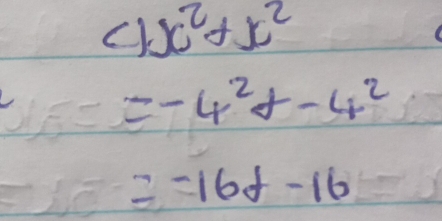 c) x² + x²
= -4² + -4²
= -16 + -16